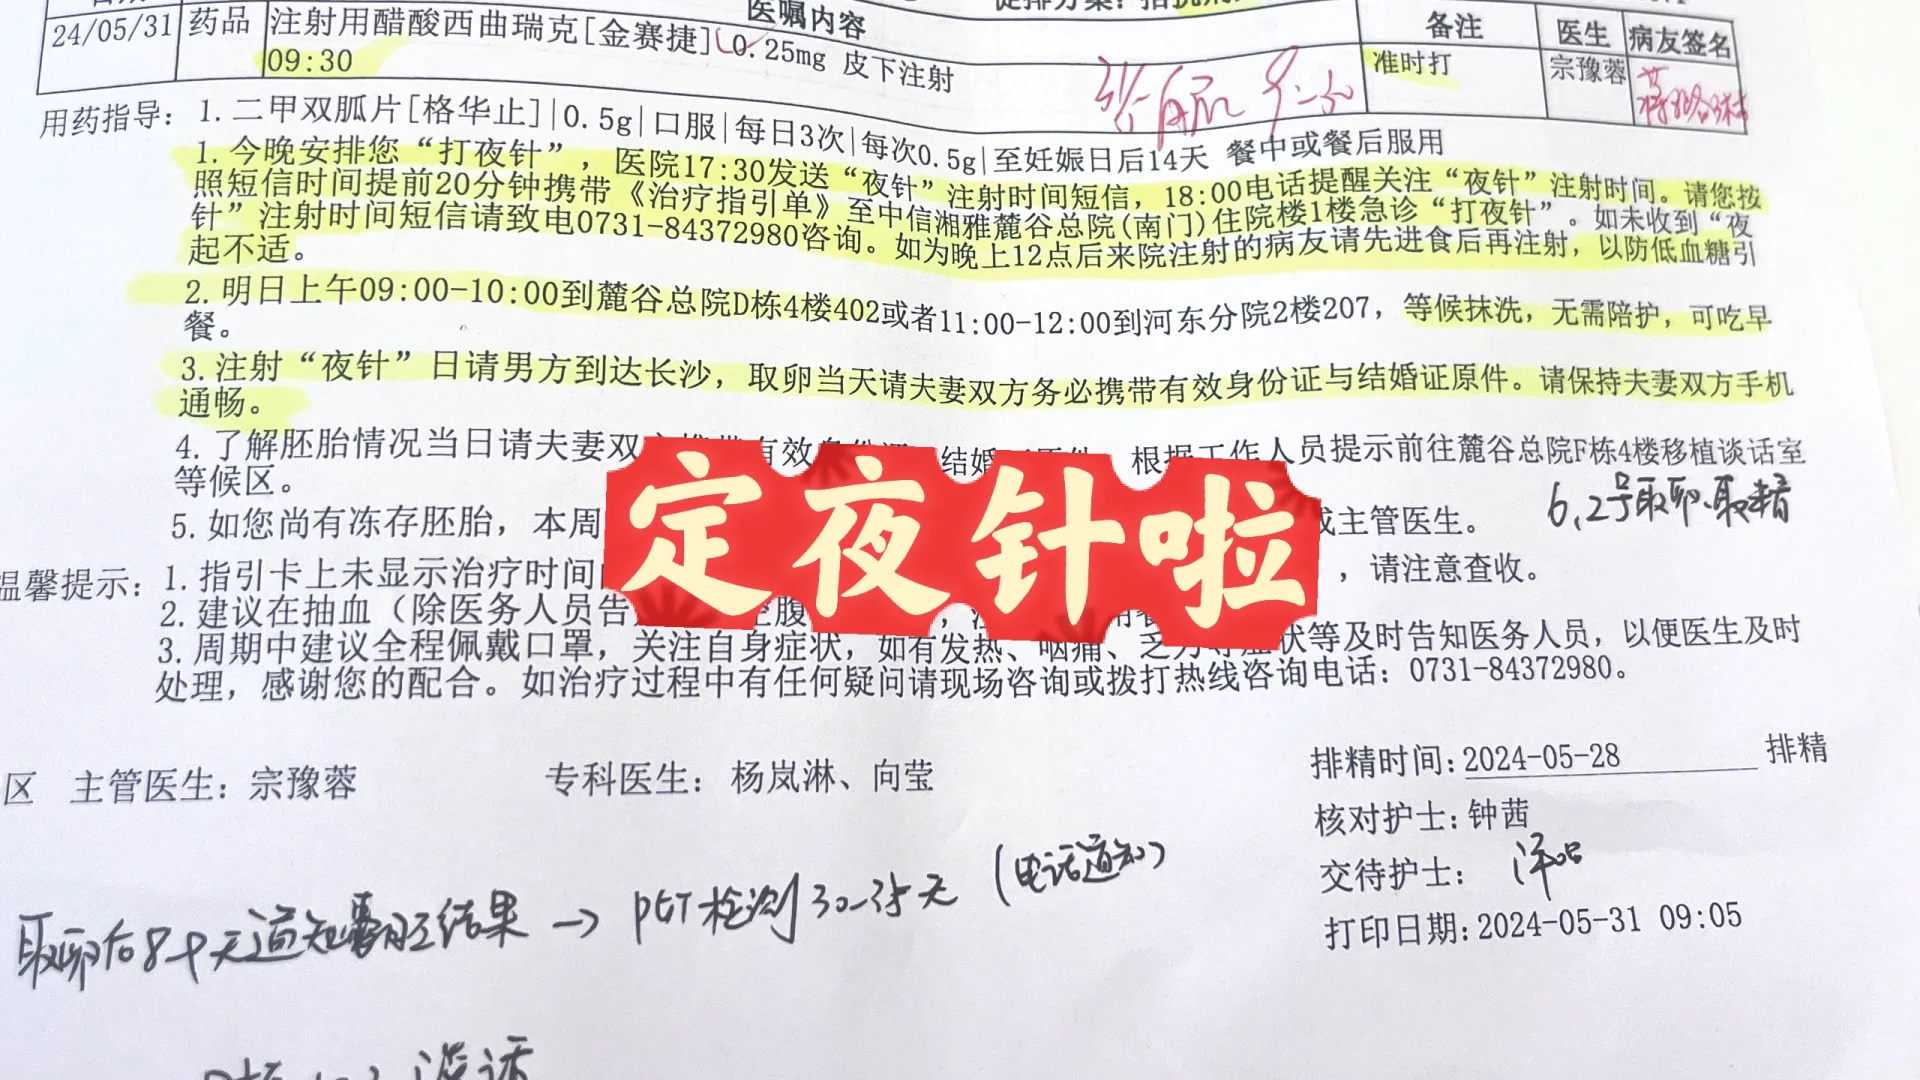 医嘱内容
备注
医生
病友签名
24/05/31
药品
注射用醋酸西曲瑞克[金赛捷] 0.25mg 皮下注射
09:30
准时打
宗豫蓉
用药指导：1.二甲双胍片[格华止]|0.5g|口服|每日3次|每次0.5g|至妊娠日后14天 餐中或餐后服用
1.今晚安排您“打夜针”，医院17:30发送“夜针”注射时间短信，18:00电话提醒关注“夜针”注射时间。请您按
照短信时间提前20分钟携带《治疗指引单》至中信湘雅麓谷总院(南门)住院楼1楼急诊“打夜针”。如未收到“夜
针”注射时间短信请致电0731-84372980咨询。如为晚上12点后来院注射的病友请先进食后再注射，以防低血糖引
起不适。
2.明日上午09:00-10:00到麓谷总院D栋4楼402或者11:00-12:00到河东分院2楼207，等候抹洗，无需陪护，可吃早
餐。
3.注射“夜针”日请男方到达长沙，取卵当天请夫妻双方务必携带有效身份证与结婚证原件。请保持夫妻双方手机
通畅。
4.了解胚胎情况当日请夫妻双 有效 结婚 根据工作人员提示前往麓谷总院F栋4楼移植谈话室
等候区。
6.2号取卵.取精
5.如您尚有冻存胚胎，本周 或主管医生。
定夜针啦
温馨提示：1.指引卡上未显示治疗时间 ，请注意查收。
2.建议在抽血（除医务人员告
3.周期中建议全程佩戴口罩，关注自身症状，如有发热、咽痛、乏力等症状等及时告知医务人员，以便医生及时
处理，感谢您的配合。如治疗过程中有任何疑问请现场咨询或拨打热线咨询电话：0731-84372980。
区 主管医生：宗豫蓉 专科医生：杨岚淋、向莹
排精时间:2024-05-28 排精
核对护士:钟茜
交待护士：
打印日期:2024-05-31 09:05
取卵后8-9天通知囊胚结果 → PGT检测30-35天 (电话通知)
谈话